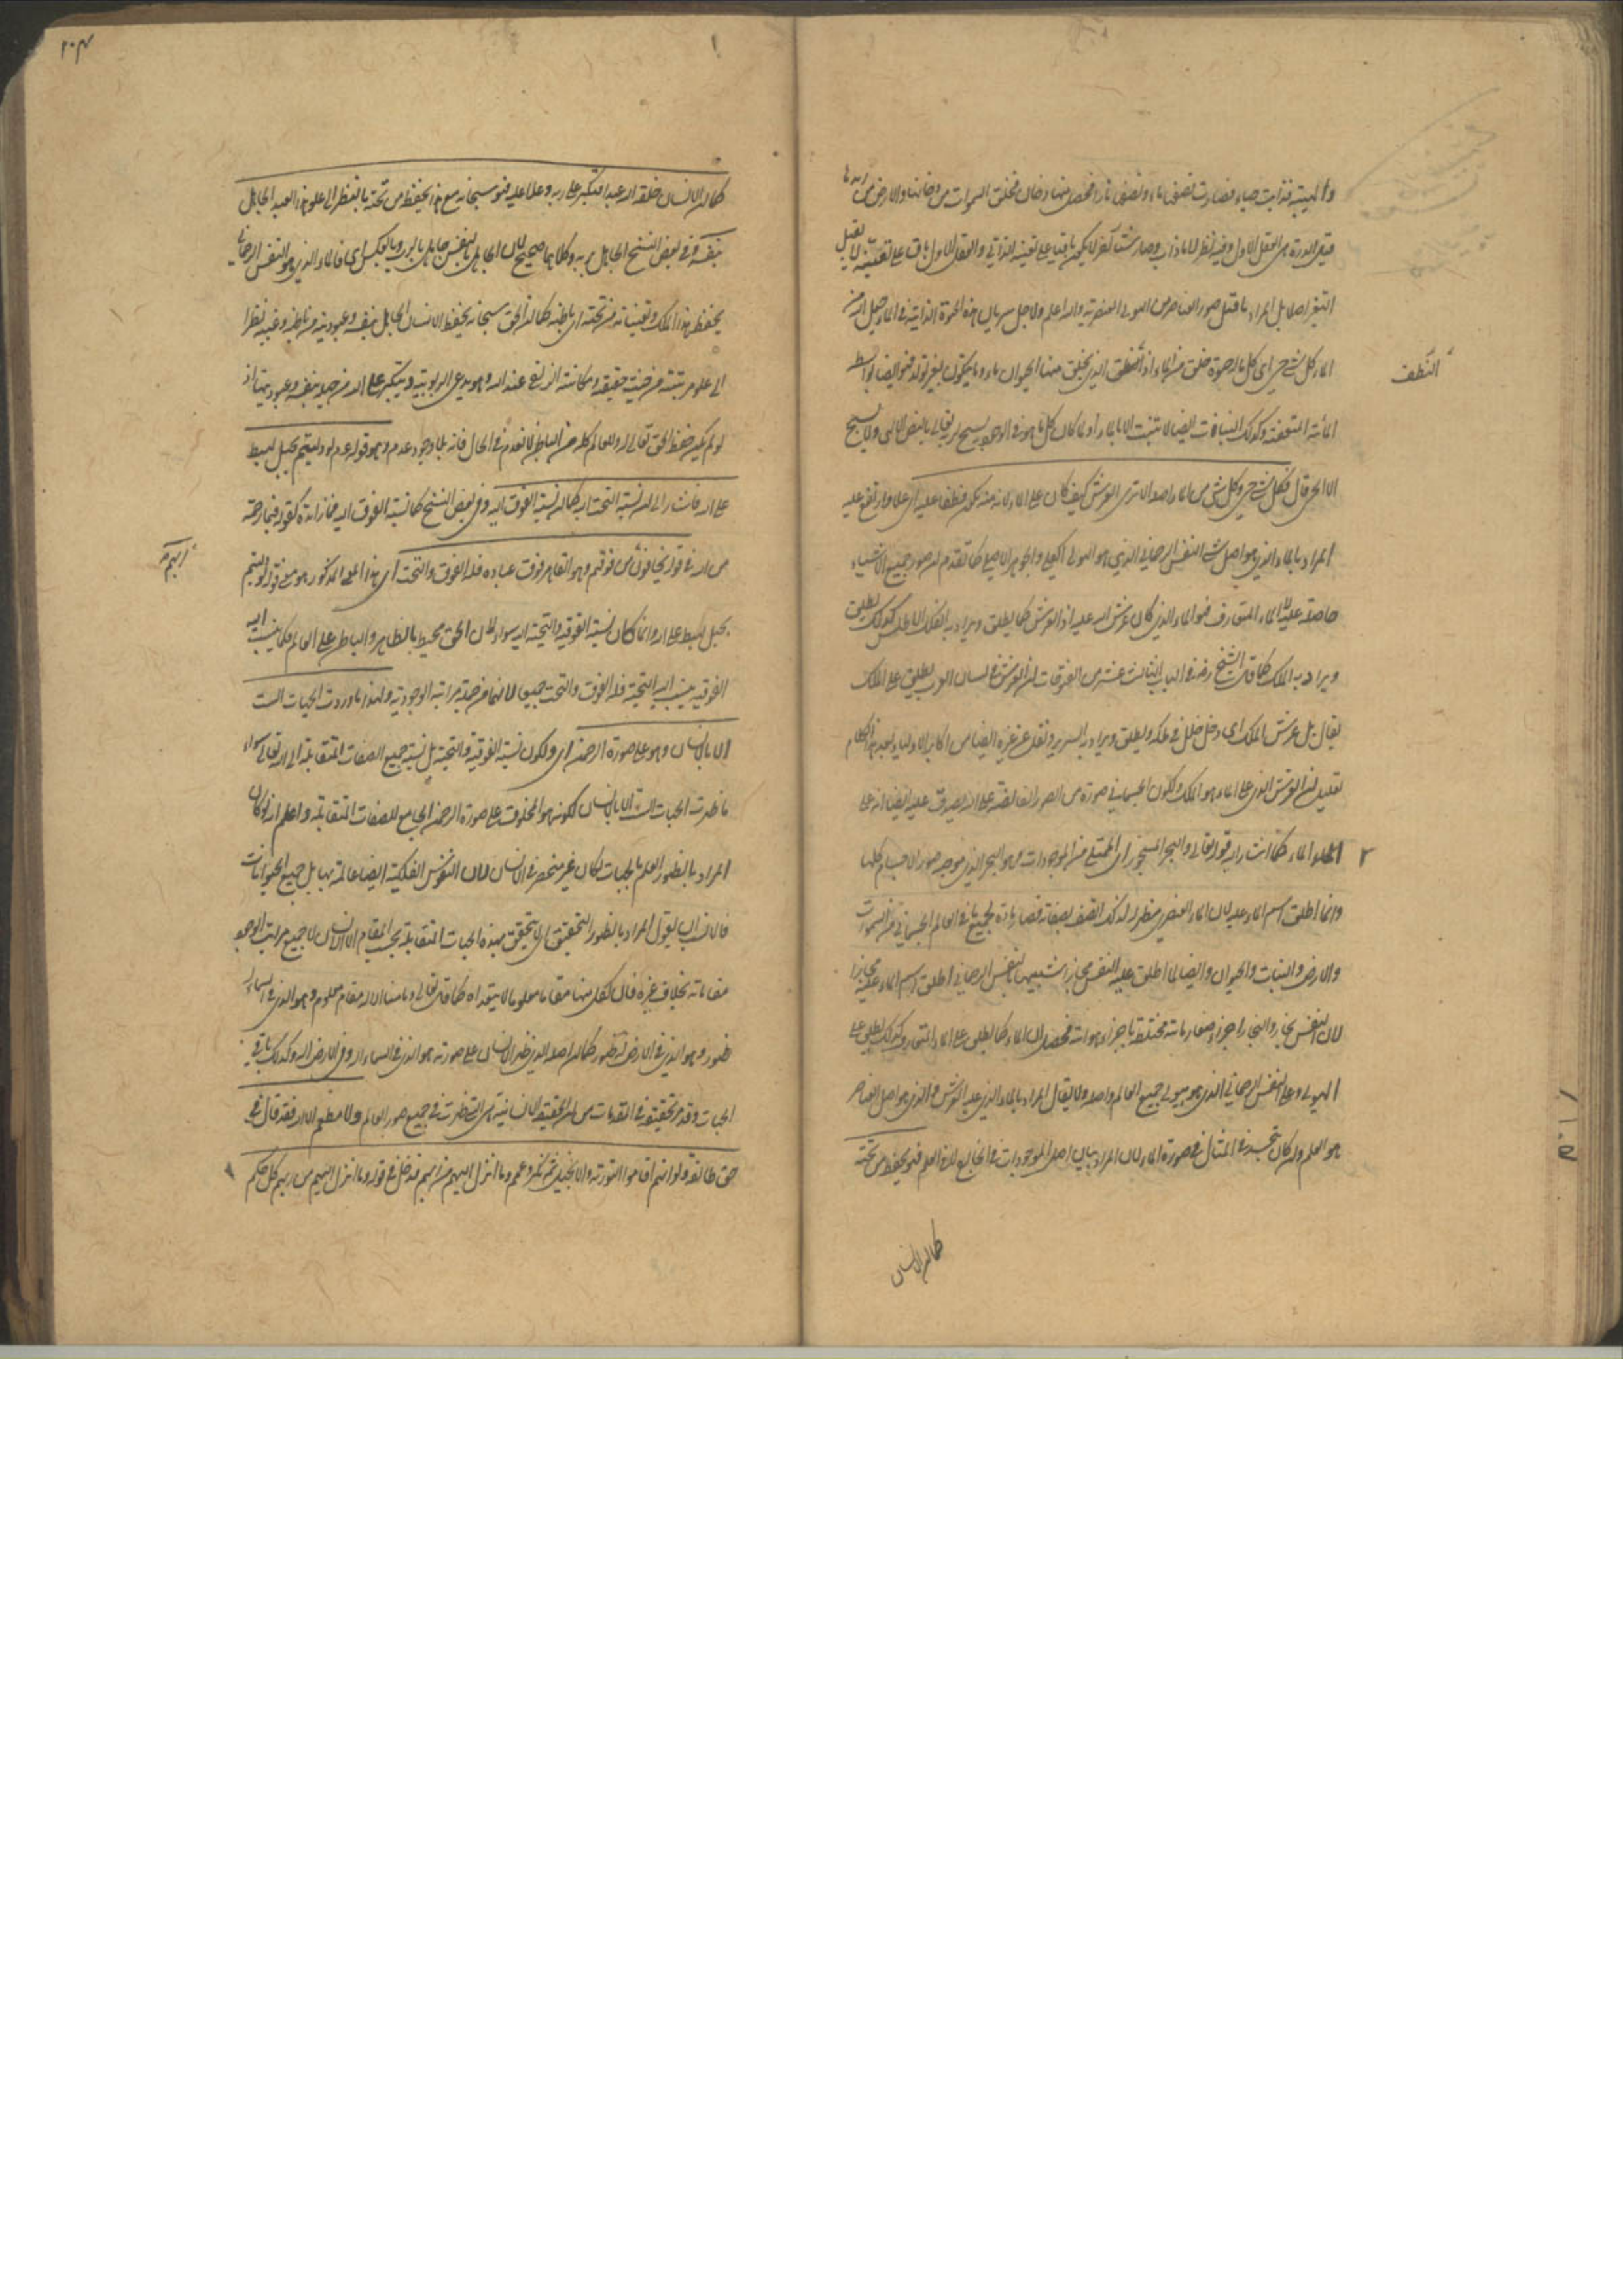 والهيبة فذابت حياء فصارت نصفين ماء ونصفين نارا فحصل منها دخان فخلق السموات من دخانها والارض من زبدها
الدرة هي العقل الاول وفيه نظر لان ما ذاب وصار شيئا آخر لا يكون باقيا على تعينه الذاتي والعقل الاول باق على تعينه لا يقبل
التغير اصلا بل المراد ما قبل صور العناصر من الهيولى العنصرية والله اعلم ولاجل سريان هذه الحيوة الذاتية في الماء جعل الله من
الماء كل شيء حي اي كل ما له حيوة خلق من الماء اذ النطفة التي يخلق منها الحيوان ماء وما يتكون بغير تولد فهو ايضا بواسطة
النطف
المائية المتعفنة وكذلك النباتات ايضا لا تنبت الا بالماء او لما كان كل ما هو في الوجود يسبح لله تعالى بالنص الالهي ولا يسبح
الا الحي قال فكل شيء حي وكل شيء من الماء اصله الا ترى العرش كيف كان على الماء لانه منه تكون فطفا عليه اي علا وارتفع عليه
المراد بالماء الذي هو اصل كل شيء النفس الرحماني الذي هو الهيولى الكلي والجوهر الاصلي كما تقدم ان صور جميع الاشياء
حاصلة عليه لا الماء المتعارف فهو الماء الذي كان عرش الله عليه اذ العرش كما يطلق ويراد به الفلك الاطلس كذلك يطلق
ويراد به الملك كما قال الشيخ رض في الباب الثالث عشر من الفتوحات ان العرش في لسان العرب يطلق على الملك
يقال ثل عرش الملك اي دخل خلل في ملكه ويطلق ويراد به السرير ونقل عن غيره ايضا من اكابر الاولياء بعد هذا الكلام
ان العرش الذي على الماء هو الملك ولكون الجسماني صورة من الصور الفائضة على الله يصدق عليه ايضا انه على
الماء كما اشار اليه قوله تعالى والبحر المسجور اي الممتلي من الموجودات وهو البحر الذي موجه صور الاجسام كلها
وانما اطلق اسم الماء عليه لان الماء العنصري مظهر له لذلك اتصف بصفاته فصار مادة لجميع ما في العالم الجسماني من السموات
والارض والنبات والحيوان وايضا لما اطلق عليه النفس مجازا تشبيها بالنفس الانساني اطلق اسم الماء عليه مجازا
لان النفس بخار والبخار اجزاء صغار مائية مختلطة باجزاء هوائية فحصل ان الماء كما يطلق على الماء المتعارف كذلك يطلق على
الهيولى وعلى النفس الرحماني الذي هو هيولى جميع العالم واصله ولا يقال المراد بالماء الذي عليه العرش والذي هو اصل العناصر
هو العلم وان كان تجسده في المثال في صورة الماء لان المراد بيان اصل الموجودات في الخارج لا في العلم فهو يحفظه من تحته
كما ان الانسان
٢٠٣
كما ان الانسان خلقه الله عبدا فتكبر على ربه وعلا عليه فهو سبحانه مع هذا يحفظه من تحته بالنظر الى علو هذا العبد الجاهل
بنفسه وفي بعض النسخ الجاهل بربه وكلاهما صحيح لان الجاهل بالنفس جاهل بالرب وبالعكس اي فالماء الذي هو النفس الرحماني
يحفظ هذا الملك وتعيناته من تحته اي باطنه كما ان الحق سبحانه يحفظ الانسان الجاهل بنفسه وعبوديته من باطنه وغيبه نظرا
الى علو مرتبته من حيث حقيقته ومكانته التي له عند الله وهو يدعي الربوبية ويتكبر على الله من جهله بنفسه وعبوديتها اذ
لو لم يكن حفظ الحق تعالى له وللعالم كله من الباطن لانعدم في الحال فانه بلا وجود عدم وهو قوله عم لو دليتم بحبل لهبط
على الله فاشار الى ان نسبة التحت اليه كما ان نسبة الفوق اليه وفي بعض النسخ كما نسبة الفوق اليه فما زائدة كقوله فبما رحمة
من الله في قوله يخافون ربهم من فوقهم وهو القاهر فوق عباده فله الفوق والتحت اي هذا المعنى المذكور هو معنى قوله لو دليتم
ربهم
بحبل لهبط على الله وانما كان نسبة الفوقية والتحتية اليه سواء لان الحق محيط بالظاهر والباطن على العالم فكما ينسب اليه
الفوقية ينسب اليه التحتية فله الفوق والتحت جميعا لانهما من جملة مراتبه الوجودية ولهذا ما وردت الجهات الست
الا بالانسان وهو على صورة الرحمن اي ولكون نسبة الفوقية والتحتية بل نسبة جميع الصفات المتقابلة الى الله تعالى سواء
ما ظهرت الجهات الست الا بالانسان لكونه هو المخلوق على صورة الرحمن الجامع للصفات المتقابلة واعلم انه لو كان
المراد بالظهور العلم بالجهات لكان غير منحصر في الانسان لان النفوس الفلكية ايضا عالمة بها بل جميع الحيوانات
فالانسب ان يقول المراد بالظهور التحقيق اي يتحقق بهذه الجهات المتقابلة بحسب المقام الا الانسان لان جميع مراتب الوجود
مقاماته بخلاف غيره فان لكل منها مقاما معلوما لا يتعداه كما قال تعالى وما منا الا له مقام معلوم وهو الذي في السماء له
ظهور وهو الذي في الارض له ظهور كما ان اصله الذي ظهر الانسان على صورته هو الذي في السماء اله وفي الارض اله وكذلك باقي
الجهات وقد مر تحقيقه في المقدمات من ان الحقيقة الانسانية هي التي ظهرت في جميع صور العالم ولا مطعم الا الله فقد قال في
حق طائفة ولو انهم اقاموا التورية والانجيل ثم نكر وعمم وما انزل اليهم من ربهم فدخل في قوله وما انزل اليهم من ربهم كل حكم